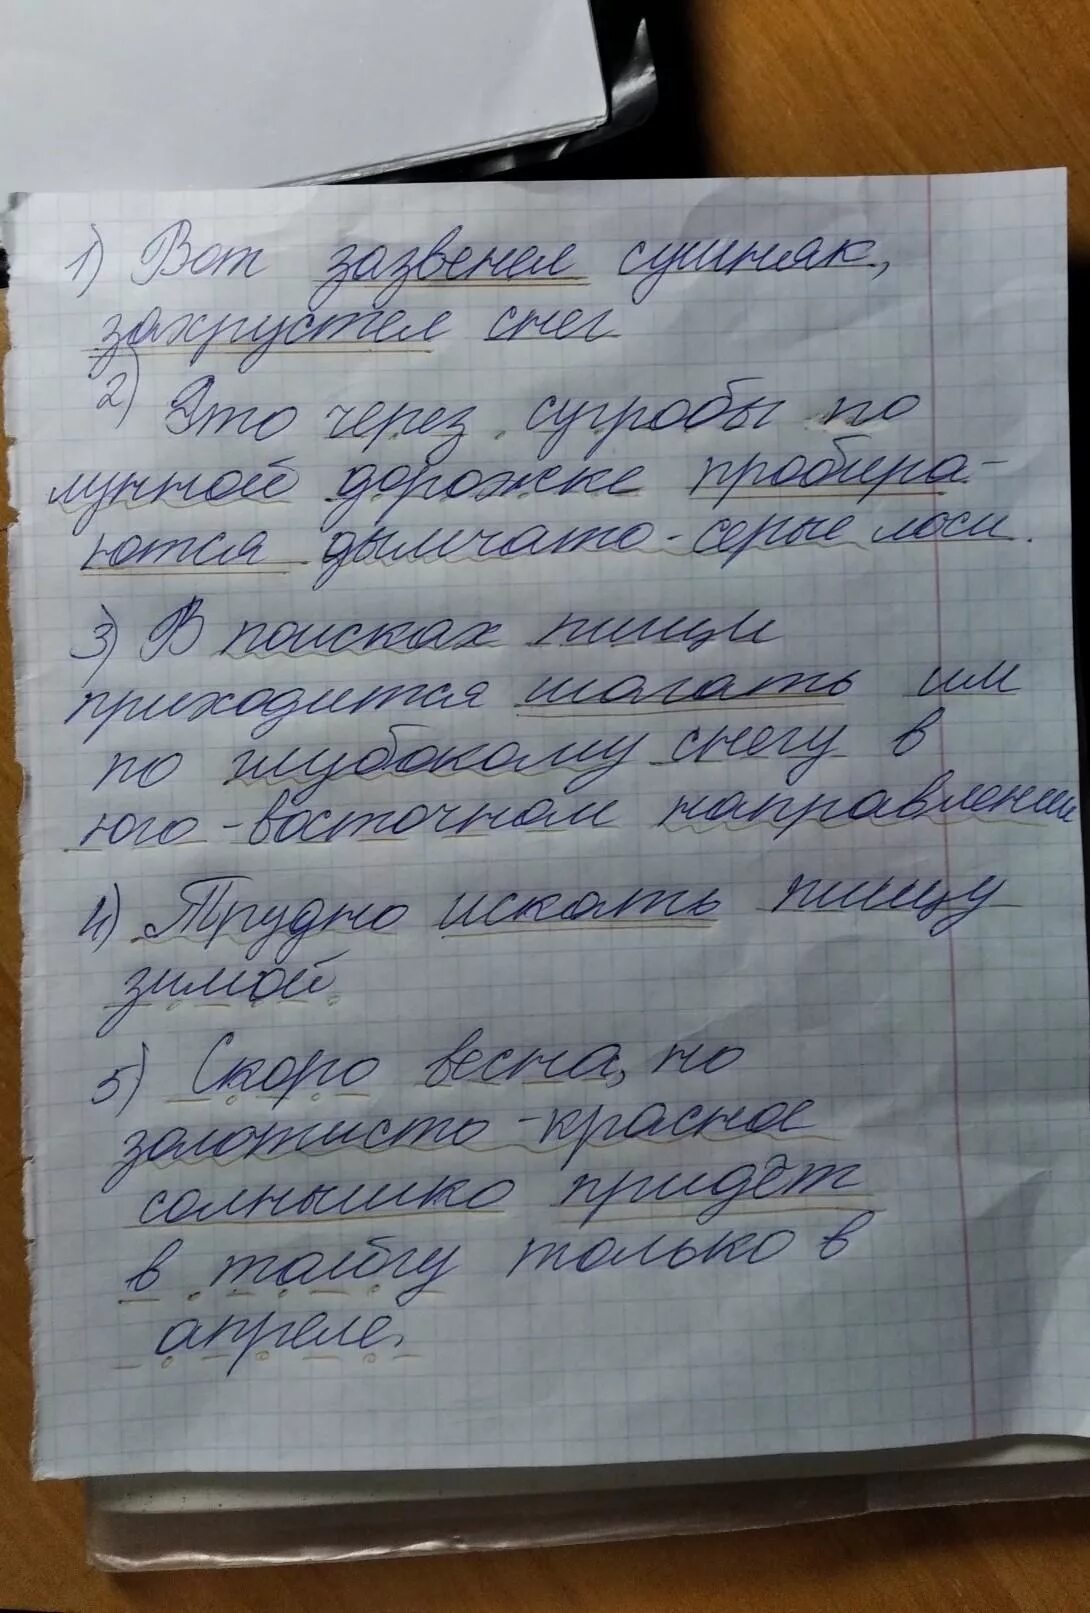 1) Вот зазвенел сушняк,
захрустел снег
2) Это через сугробы по
лунной дорожке пробира-
ются дымчато-серые лоси.
3) В поисках пищи
приходится шагать им
по глубокому снегу в
юго-восточном направлении
4) Трудно искать пищу
зимой.
5) Скоро весна, но
золотисто-красное
солнышко придёт
в тайгу только в
апреле.